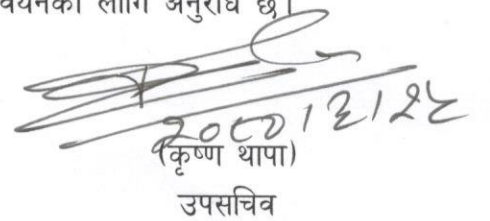 लागि अनुरोध छ।
२०८०।३।२५
(कृष्ण थापा)
उपसचिव